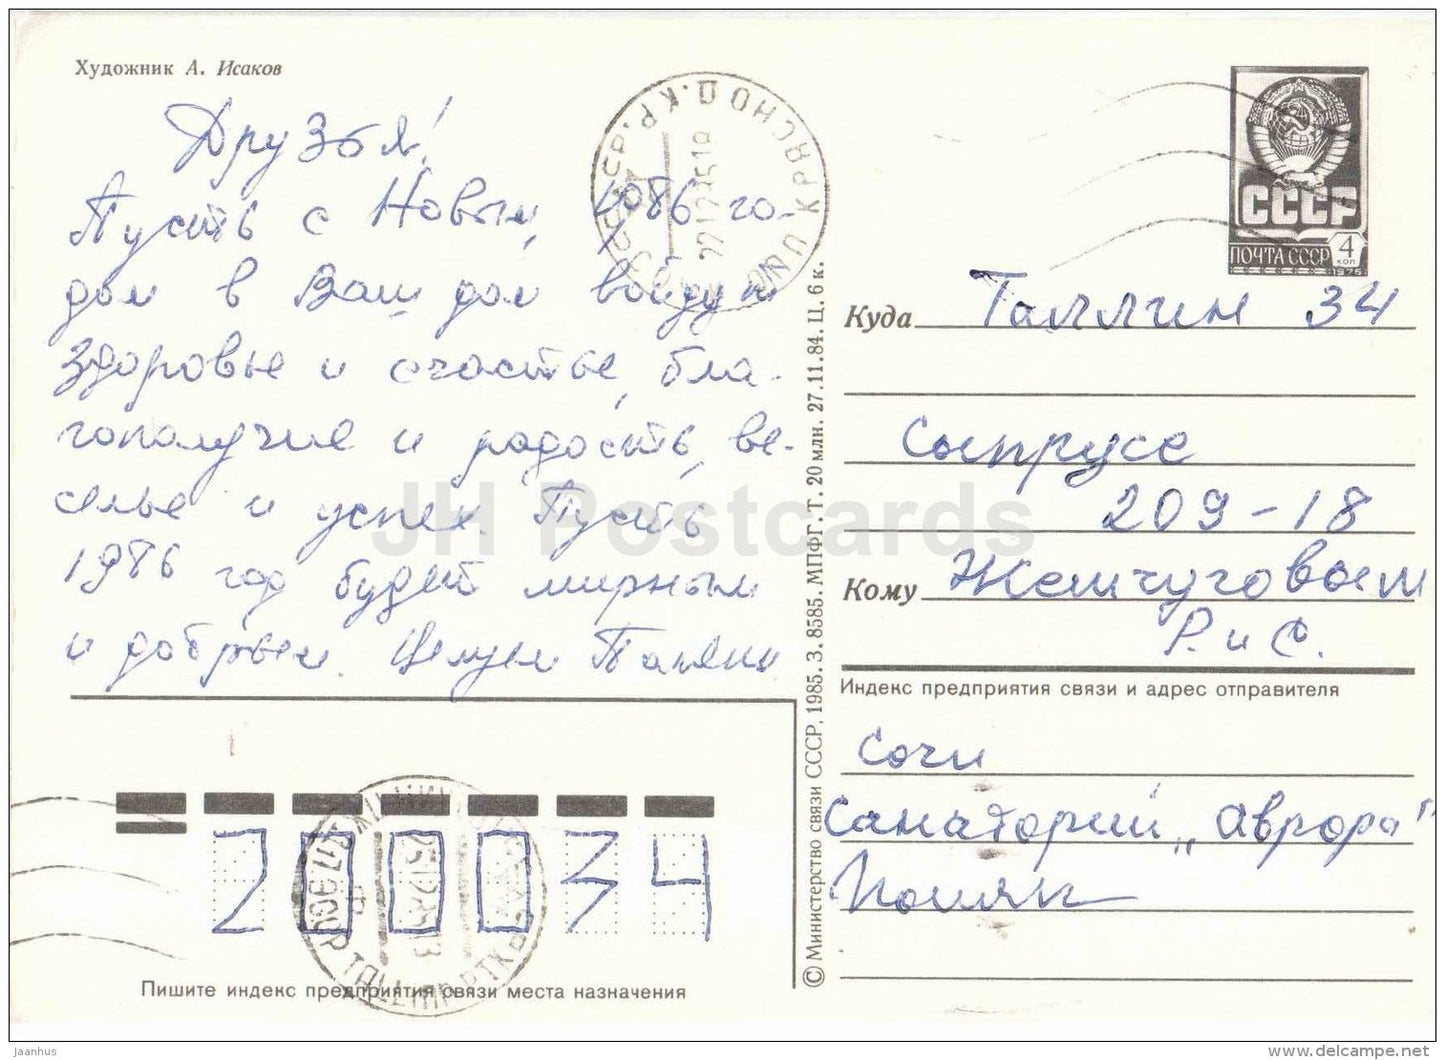 Художник А. Исаков
Друзья!
Пусть с Новым, 1986 го-
дом в Ваш дом войдут
здоровье и счастье, бла-
гополучие и радость, ве-
селье и успех. Пусть
1986 год будет мирным
и добрым. Целуем
СССР
ПОЧТА СССР 4 коп
1976
Куда Таллин 34
Сыпрусе
209-18
Кому Жемчуговым
Р. и С.
Индекс предприятия связи и адрес отправителя
Сочи
Санаторий „Аврора"
© Министерство связи СССР, 1985. З. 8585. МПФГ. Т. 20 млн. 27.11.84. Ц. 6 к.
200034
Пишите индекс предприятия связи места назначения
JH Postcards
jaanhus
delcampe.net